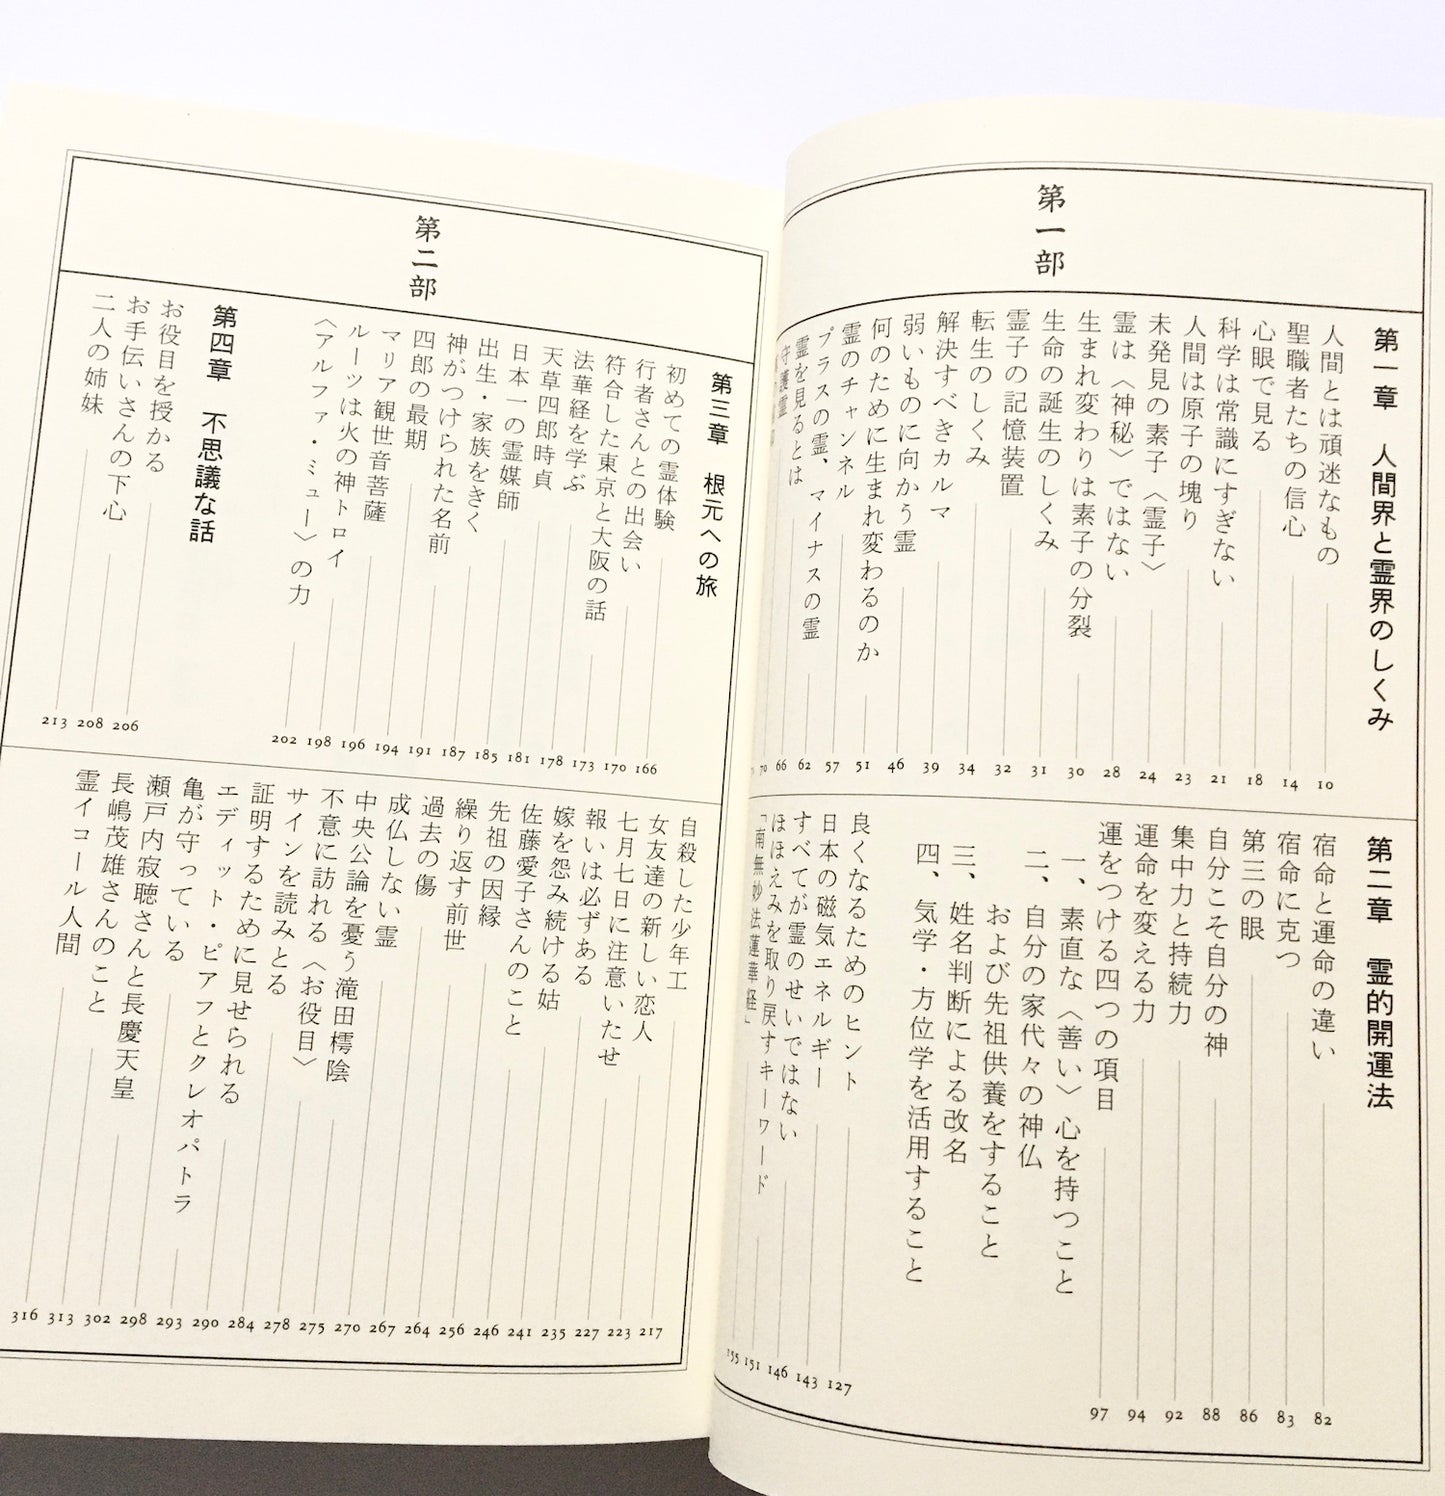 第一部
第一章 人間界と霊界のしくみ
人間とは頑迷なもの 10
聖職者たちの信心 14
心眼で見る 18
科学は常識にすぎない 21
人間は原子の塊り 23
未発見の素子〈霊子〉 24
霊は〈神秘〉ではない 28
生まれ変わりは素子の分裂 30
生命の誕生のしくみ 31
霊子の記憶装置 32
転生のしくみ 34
解決すべきカルマ 39
弱いものに向かう霊 46
何のために生まれ変わるのか 51
霊のチャンネル 57
プラスの霊、マイナスの霊 62
霊を見るとは 66
守護霊 70
第二章 霊的開運法
宿命と運命の違い 82
宿命に克つ 83
第三の眼 86
自分こそ自分の神 88
集中力と持続力 92
運命を変える力 94
運をつける四つの項目 97
一、素直な〈善い〉心を持つこと
二、自分の家代々の神仏
および先祖供養をすること
三、姓名判断による改名
四、気学・方位学を活用すること
良くなるためのヒント 127
日本の磁気エネルギー 143
すべてが霊のせいではない 146
ほほえみを取り戻すキーワード 151
「南無妙法蓮華経」 155
第二部
第三章 根元への旅
初めての霊体験 166
行者さんとの出会い 170
符合した東京と大阪の話 173
法華経を学ぶ 178
天草四郎時貞 181
日本一の霊媒師 185
出生・家族をきく 187
神がつけられた名前 191
四郎の最期 194
マリア観世音菩薩 196
ルーツは火の神トロイ 198
〈アルファ・ミュー〉の力 202
第四章 不思議な話
お役目を授かる 206
お手伝いさんの下心 208
二人の姉妹 213
自殺した少年工 217
女友達の新しい恋人 223
七月七日に注意いたせ 227
報いは必ずある 235
嫁を怨み続ける姑 241
佐藤愛子さんのこと 246
先祖の因縁 256
繰り返す前世 264
過去の傷 267
成仏しない霊 270
中央公論を憂う滝田樗陰 275
不意に訪れる〈お役目〉 278
サインを読みとる 284
証明するために見せられる 290
エディット・ピアフとクレオパトラ 293
亀が守っている 298
瀬戸内寂聴さんと長慶天皇 302
長嶋茂雄さんのこと 313
霊イコール人間 316